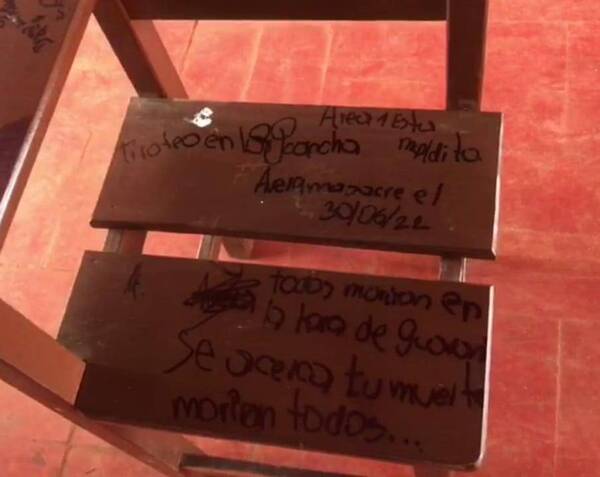 Area 1 Esta
tiroteo en la concha maldita
Avera masacre el
30/06/22
A.
todos moriran en
la hora de guaran
Se acerca tu muerte
morian todos...